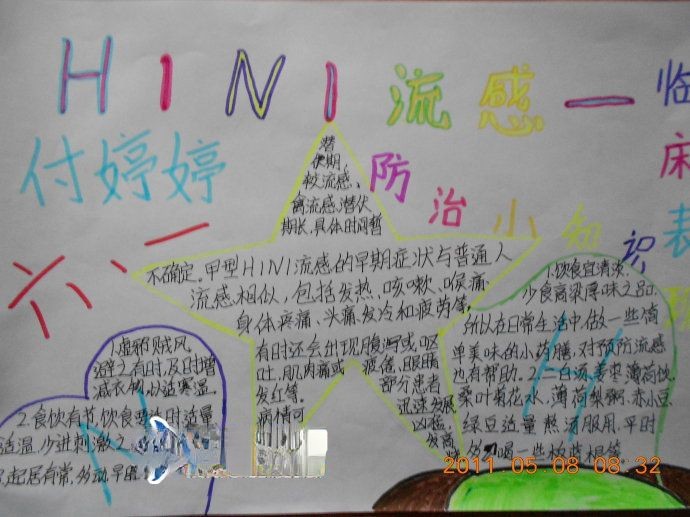 H1N1流感一
临
床
表
现
付婷婷
六、一
防治小知识
潜
伏期,
较流感、
禽流感潜伏
期长,具体时间暂
不确定。甲型H1N1流感的早期症状与普通人
流感相似,包括发热、咳嗽、喉痛、
身体疼痛、头痛、发冷和疲劳等,
有时还会出现腹泻或呕
吐、肌肉痛或疲倦、眼睛
发红等。
部分患者
病情可
迅速发展
1.虚邪贼风
避之有时,及时增
减衣物,以适寒温.
2.食饮有节,饮食要适时适量
适温,少进刺激之
起居有常,劳动
1.饮食宜清淡,
少食膏粱厚味之品.
所以在日常生活中,做一些简
单美味的小药膳,对预防流感
也有帮助.2.二白汤,姜枣薄荷饮,
桑叶菊花水,薄荷梨粥,赤小豆、
绿豆适量熬汤服用.平时
喝一些板蓝根等
2011 05 08 08:32